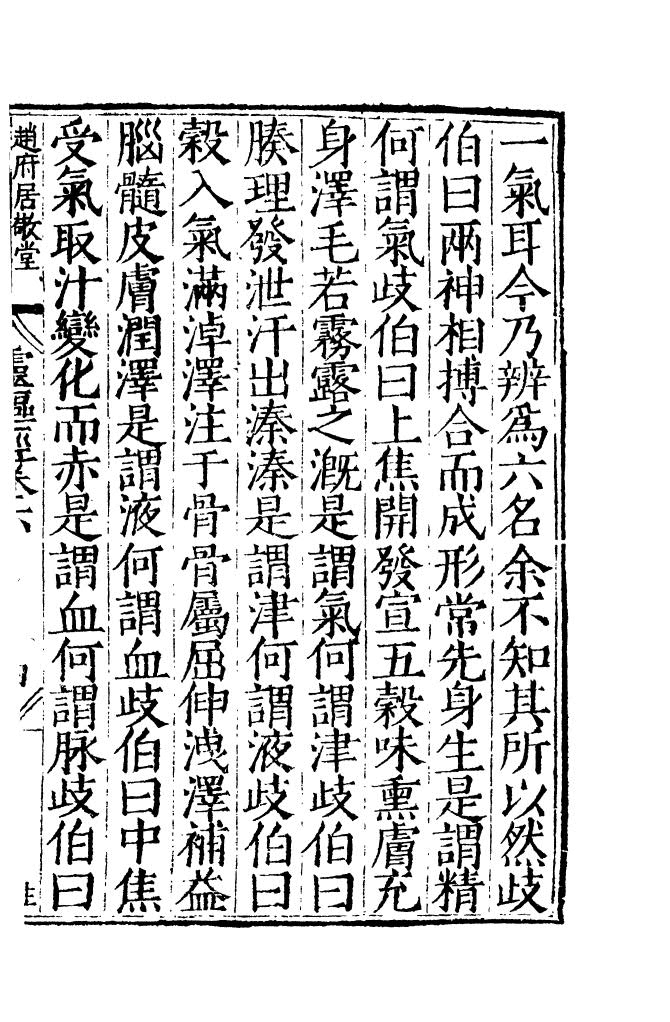 一氣耳今乃辨爲六名余不知其所以然歧
伯曰兩神相搏合而成形常先身生是謂精
何謂氣歧伯曰上焦開發宣五穀味熏膚充
身澤毛若霧露之溉是謂氣何謂津歧伯曰
腠理發泄汗出溱溱是謂津何謂液歧伯曰
穀入氣滿淖澤注于骨骨屬屈伸洩澤補益
腦髓皮膚潤澤是謂液何謂血歧伯曰中焦
受氣取汁變化而赤是謂血何謂脉歧伯曰
趙府居敬堂